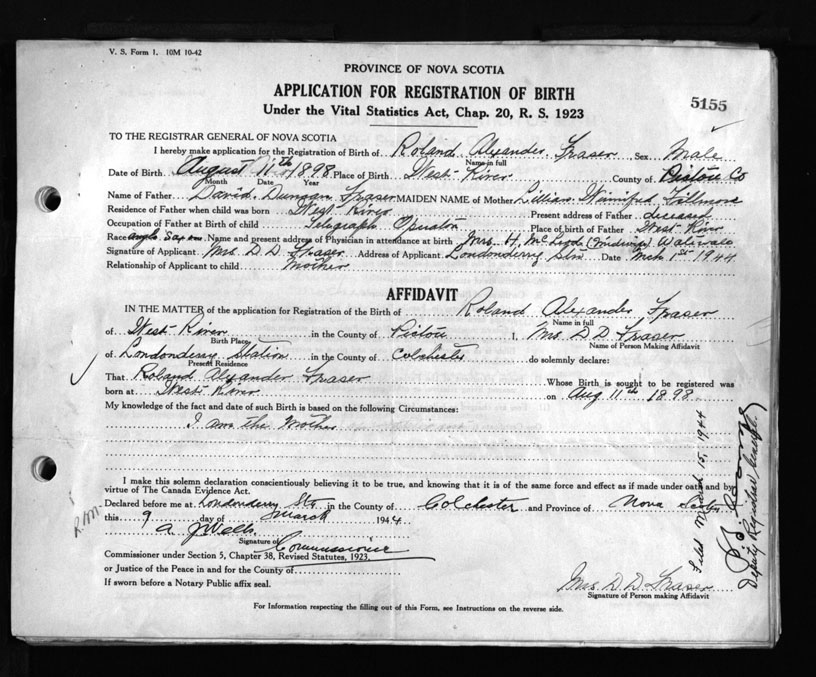 V. S. Form 1. 10M 10-42
PROVINCE OF NOVA SCOTIA
APPLICATION FOR REGISTRATION OF BIRTH
5155
Under the Vital Statistics Act, Chap. 20, R. S. 1923
TO THE REGISTRAR GENERAL OF NOVA SCOTIA
I hereby make application for the Registration of Birth of Roland Alexander Fraser Sex Male
Name in full
Date of Birth August 11th 1898 Place of Birth West River County of Pictou Co
Month Date Year
Name of Father David Duncan Fraser MAIDEN NAME of Mother Lillian Winifred Fillmore
Residence of Father when child was born West River Present address of Father deceased
Occupation of Father at Birth of child Telegraph Operator Place of birth of Father West River
Race Anglo Saxon Name and present address of Physician in attendance at birth Mrs. H. McLeod
Signature of Applicant Mrs. D D Fraser Address of Applicant Londonderry Stn Date Mch 1st 1944
Relationship of Applicant to child Mother
AFFIDAVIT
IN THE MATTER of the application for Registration of the Birth of Roland Alexander Fraser
Name in full
of West River in the County of Pictou I, Mrs D D Fraser
Birth Place Name of Person Making Affidavit
of Londonderry Station in the County of Colchester do solemnly declare:
Present Residence
That Roland Alexander Fraser Whose Birth is sought to be registered was
born at West River on Aug 11th 1898
My knowledge of the fact and date of such Birth is based on the following Circumstances:
I am the Mother
I make this solemn declaration conscientiously believing it to be true, and knowing that it is of the same force and effect as if made under oath and by
virtue of The Canada Evidence Act.
Declared before me at Londonderry Sta in the County of Colchester and Province of Nova Scotia
this 9 day of March 1944
Signature of Commissioner
Commissioner under Section 5, Chapter 38, Revised Statutes, 1923,
or Justice of the Peace in and for the County of
If sworn before a Notary Public affix seal.
Mrs. D D Fraser
Signature of Person making Affidavit
For Information respecting the filling out of this Form, see Instructions on the reverse side.
Filed March 15, 1944
Deputy Registrar General